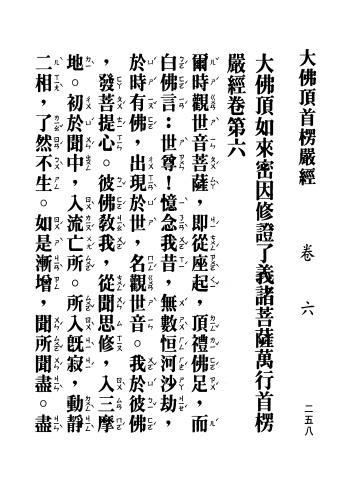 大佛頂首楞嚴經
卷六
二五八
大佛頂如來密因修證了義諸菩薩萬行首楞
嚴經卷第六
爾時觀世音菩薩，即從座起，頂禮佛足，而
白佛言：世尊！憶念我昔，無數恒河沙劫，
於時有佛，出現於世，名觀世音。我於彼佛
，發菩提心。彼佛教我，從聞思修，入三摩
地。初於聞中，入流亡所。所入既寂，動靜
二相，了然不生。如是漸增，聞所聞盡。盡